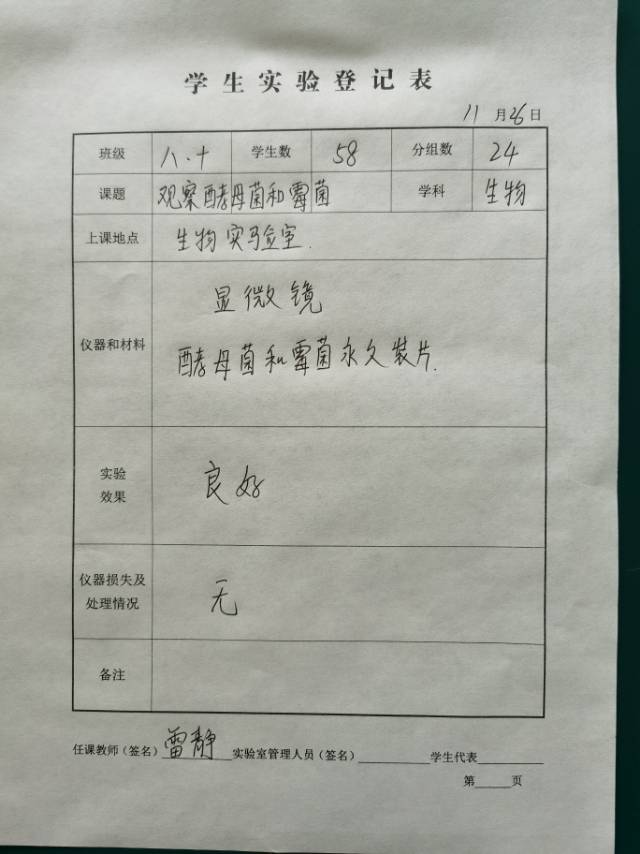 学生实验登记表
11月26日
班级 八.十 学生数 58 分组数 24
课题 观察酵母菌和霉菌 学科 生物
上课地点 生物实验室.
显微镜
仪器和材料
酵母菌和霉菌永久装片.
实验
效果
良好
仪器损失及
处理情况
无
备注
任课教师（签名）雷静 实验室管理人员（签名） 学生代表
第 页